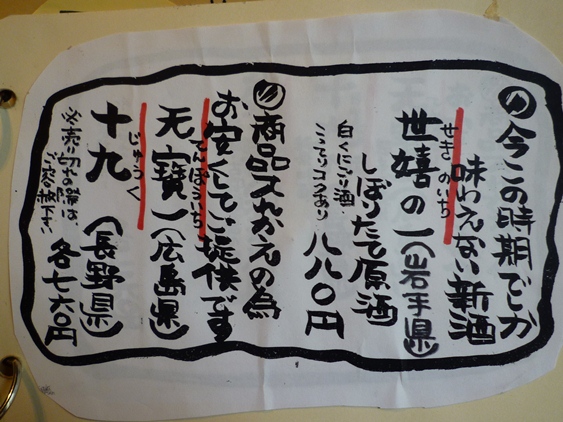 今この時期でしか
味わえない新酒
せき のいち
世嬉の一(岩手県)
しぼりたて原酒
白くにごり酒.
こってりコクあり
八八〇円
商品入れかえの為
お安くしてご提供です
てんぽういち
天寶一(広島県)
じゅうく
十九(長野県)
各七六〇円
※売り切れの際は、
ご容赦下さい